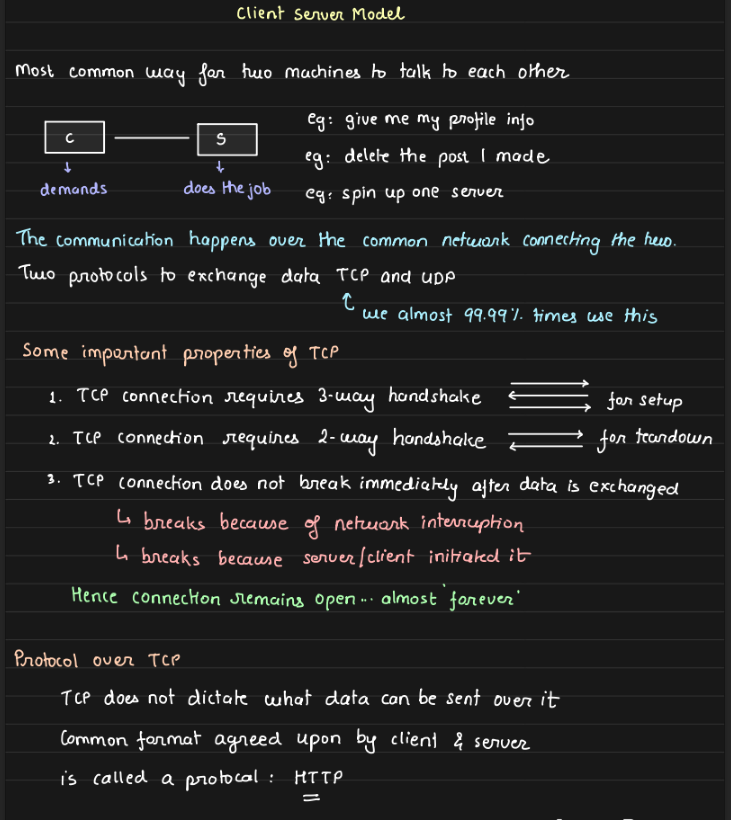 Client Server Model
Most common way for two machines to talk to each other
C
S
eg: give me my profile info
eg: delete the post I made
demands
does the job
eg: spin up one server
The communication happens over the common network connecting the two.
Two protocols to exchange data TCP and UDP
we almost 99.99% times use this
Some important properties of TCP
1. TCP connection requires 3-way handshake
for setup
2. TCP connection requires 2-way handshake
for teardown
3. TCP connection does not break immediately after data is exchanged
breaks because of network interruption
breaks because server/client initiated it
Hence connection remains open... almost 'forever'
Protocol over TCP
TCP does not dictate what data can be sent over it
Common format agreed upon by client & server
is called a protocol : HTTP